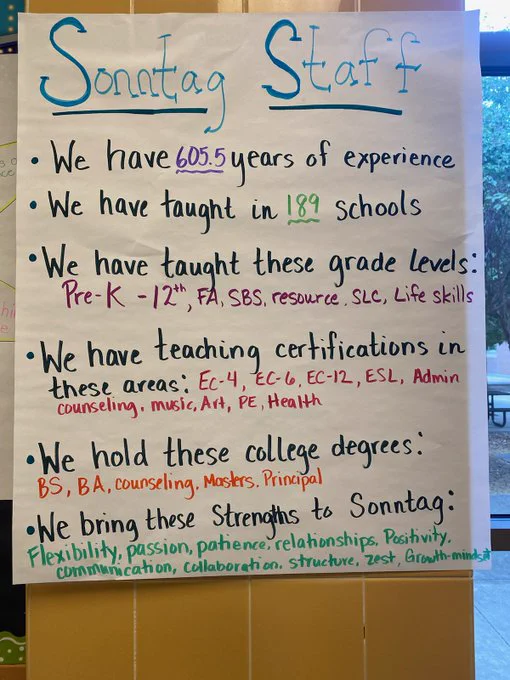 Sonntag Staff
• We have 605.5 years of experience
• We have taught in 189 schools
• We have taught these grade levels:
Pre-K - 12th, FA, SBS, resource, SLC, Life skills
• We have teaching certifications in
these areas: EC-4, EC-6, EC-12, ESL, Admin
counseling, music, Art, PE, Health
• We hold these college degrees:
BS, BA, counseling, Masters, Principal
• We bring these Strengths to Sonntag:
Flexibility, passion, patience, relationships, Positivity,
communication, collaboration, structure, zest, Growth-mindset